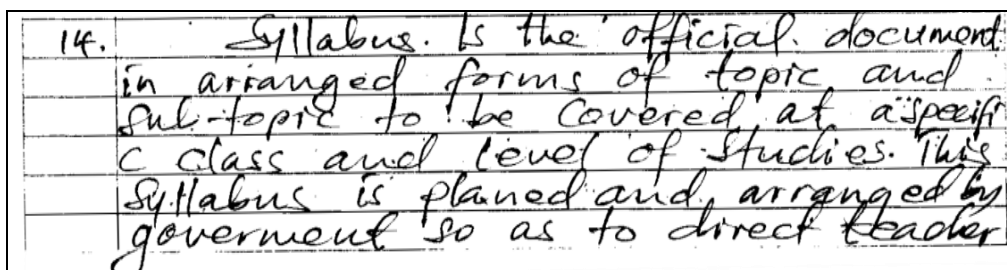 14. Syllabus. Is the official. document
in arranged forms of topic and
sub-topic to be covered at a specifi
c class and level of studies. This
syllabus is planed and, arranged by
goverment so as to direct teacher